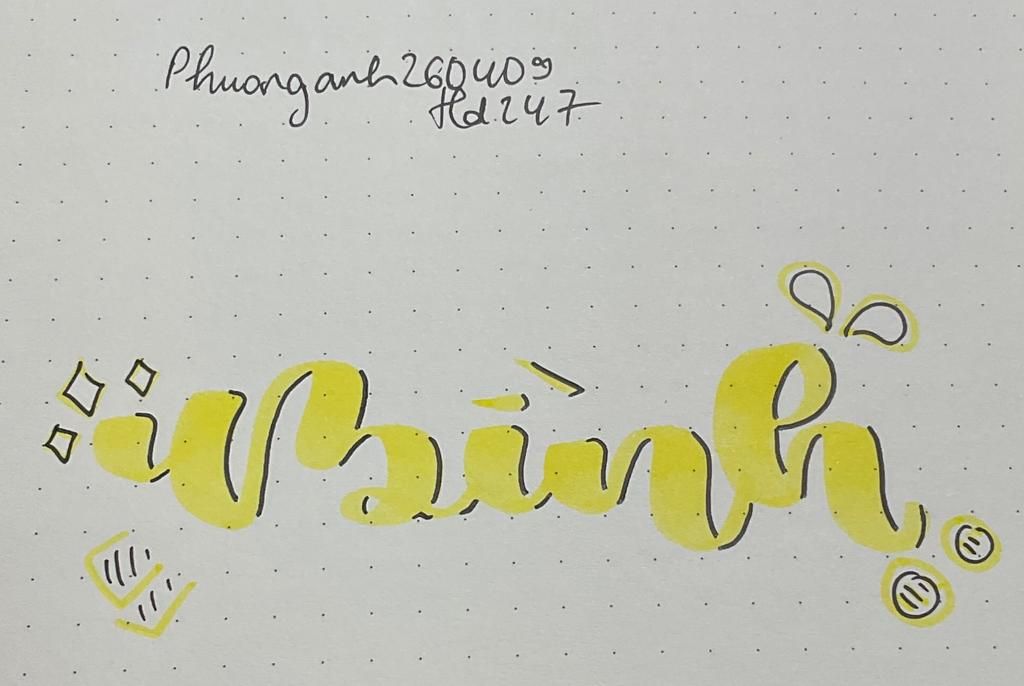 Phuonganh260409
Hd247
Bình